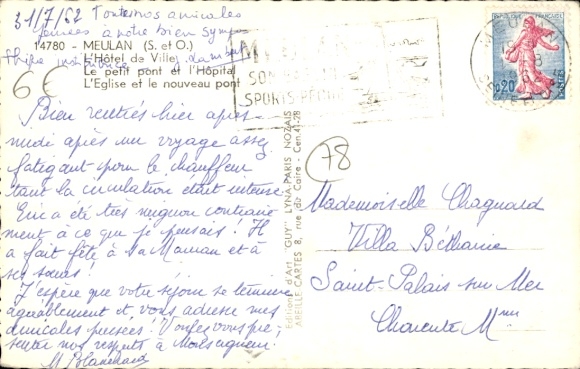 31/7/62 Toutes nos amicales
pensées à notre bien sympa
thique institutrice
14780 - MEULAN (S. et O.)
L'Hôtel de Ville
Le petit pont et l'Hôpital
L'Eglise et le nouveau pont
6€
SPORTS
REPUBLIQUE FRANÇAISE
0,20
POSTES
78
Bien rentrés hier après
midi après un voyage assez
fatigant pour le chauffeur
tant la circulation était intense
Eric a été très mignon contraire
ment à ce que je pensais ! Il
a fait fête à sa Maman et à
ses sœurs !
J'espère que votre séjour se termine
agréablement et vous adresse mes
amicales pensées ! Voulez vous pré
senter nos respects à Monseigneur.
M Blanchard
Editions d'Art "GUY" LYNA-PARIS NOZAIS
ABEILLE CARTES 8, rue du Caire - Cen. 41-28
Mademoiselle Chagnard
Villa Béthanie
Saint-Palais sur Mer
Charente Mme